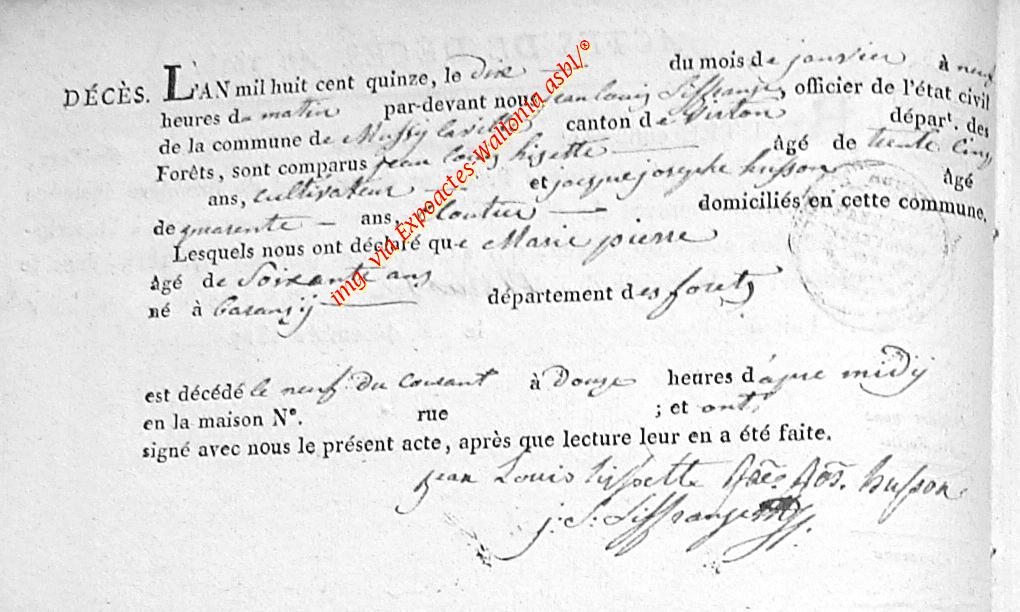 DÉCÈS. L'AN mil huit cent quinze, le dix du mois de janvier à neuf
heures du matin par-devant nous jean louis Siffrange, officier de l'état civil
de la commune de Mussy la ville canton de Virton départ. des
Forêts, sont comparus jean louis hizette âgé de trente cinq
ans, cultivateur et jacque josephe husson âgé
de quarente ans, domiciliés en cette commune.
Lesquels nous ont déclaré que Marie pierre
âgé de Soixante ans
né à Baranzij département des forets
est décédé le neuf du Courant à Douze heures d'apre midy
en la maison N°. rue ; et ont
signé avec nous le présent acte, après que lecture leur en a été faite.
jean Louis husson
j. Siffrange
img. via Expoactes-Wallonia asbl/®